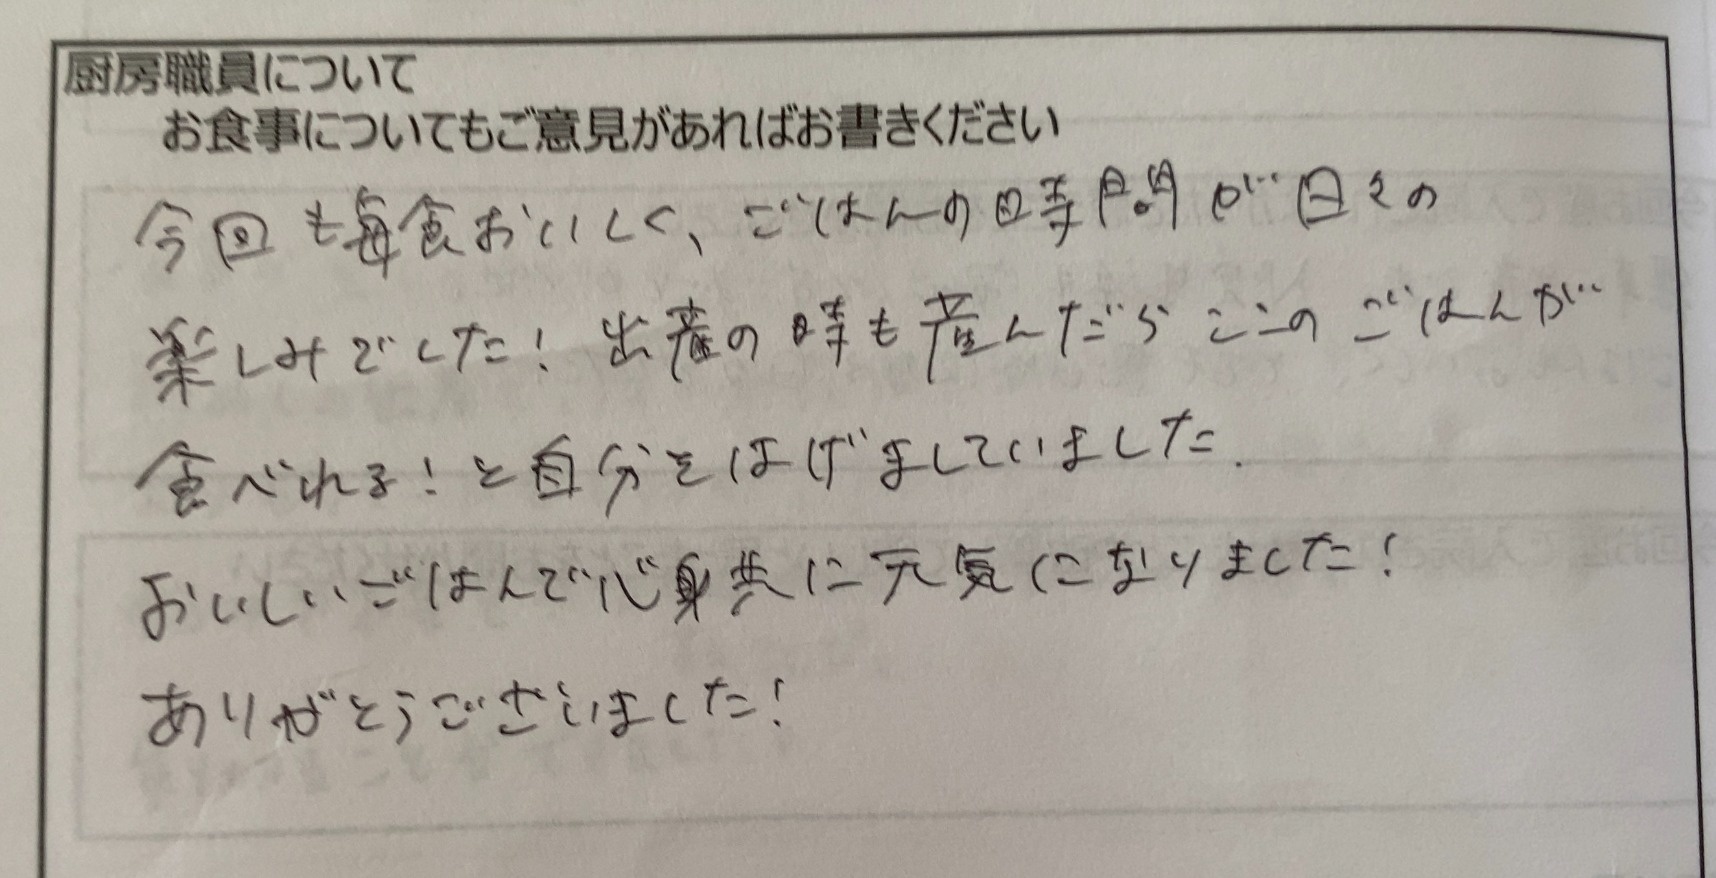 厨房職員について
お食事についてもご意見があればお書きください
今回も毎食おいしく、ごはんの時間が日々の
楽しみでした！出産の時も産んだらここのごはんが
食べれる！と自分をはげましていました.
おいしいごはんで心身共に元気になりました！
ありがとうございました！